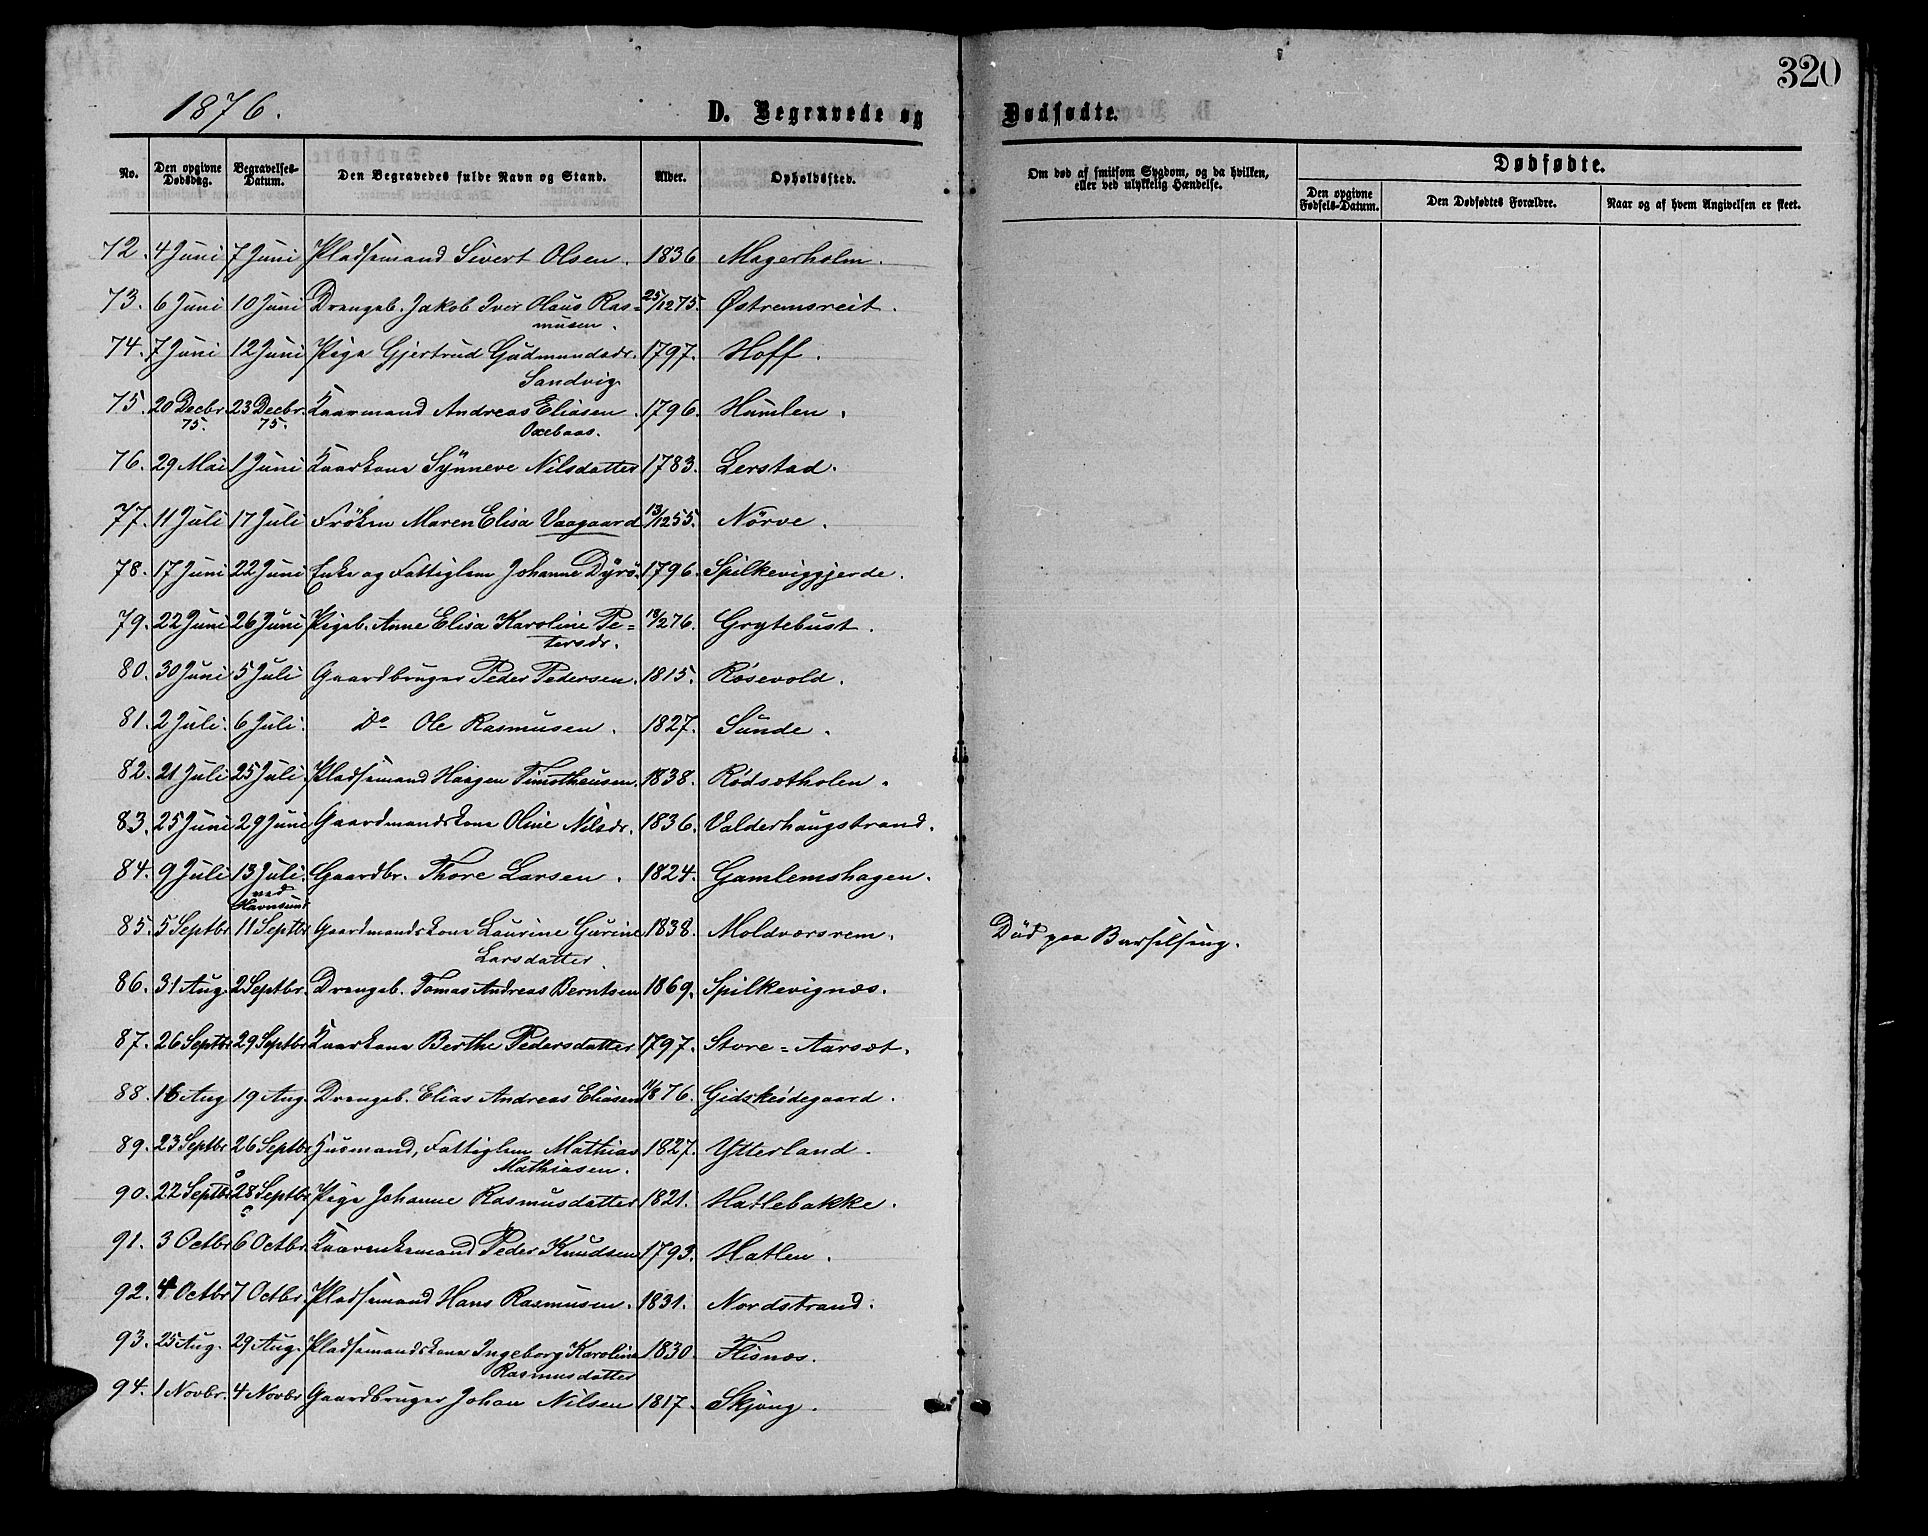 320
1876.
D. Begravede og Dødfødte.
No. Den opgivne Dødsdag. Begravelses-Datum. Den Begravedes fulde Navn og Stand. Alder. Opholdssted. Om død af smitsom Sygdom, og da hvilken, eller ved ulykkelig Hændelse. Dødfødte.
Den opgivne Fødsels-Datum. Den Dødfødtes Forældre. Naar og af hvem Angivelsen er skeet.
72. 4 Juni 7 Juni Pladsemand Sivert Olsen. 1836 Magerholm.
73. 6 Juni 10 Juni Drengeb. Jakob Iver Olaus Ras=
musen. 25/12 75. Østremsreit.
74. 7 Juni 12 Juni Pige Gjertrud Gudmundsdr. 1797. Hoff.
Sandvig
75. 20 Decbr. 75. 23 Decbr. 75. Kaarmand Andreas Eliasen 1796. Humlen.
Oxebaas.
76. 29 Mai 1 Juni Kaarkone Synneve Nilsdatter 1783. Lerstad.
77. 11 Juli 17 Juli Frøken Maren Elisa Vaagaard 13/12 55. Nörve.
78. 17 Juni 22 Juni Enke og Fattiglem Johanne Dyrö. 1796. Spilkeviggjerde.
79. 22 Juni 26 Juni Pigeb. Anne Elisa Karoline Pe=
tersdr. 18/2 76. Grytebust.
80. 30 Juni 5 Juli Gaardbruger Peder Pedersen. 1815. Rösevold.
81. 2 Juli. 6 Juli. Do Ole Rasmusen. 1827. Sunde.
82. 21 Juli 25 Juli. Pladsemand Haagen Timotheusen. 1838. Rödsætholen.
83. 25 Juni 29 Juni Gaardmandskone Oline Nilsdr. 1836. Valderhaugstrand.
84. 9 Juli 13 Juli. Gaardbr. Thore Larsen. 1824. Gamlemshagen.
ved
Havnsund
85. 5 Septbr 11 Septbr Gaardmandskone Laurine Gurine 1838. Moldværsrem. Död paa Barselseng.
Larsdatter.
86. 31 Aug 2 Septbr. Drengeb. Tomas Andreas Berntsen 1869. Spilkevignæs.
87. 26 Septbr 29 Septbr Kaarkone Berthe Pedersdatter 1797. Store=Aarsæt.
88. 16 Aug 19 Aug. Drengeb. Elias Andreas Eliasen 11/8 76. Gidskeödegaard.
89. 23 Septbr 26 Septbr Husmand, Fattiglem Mathias 1827. Ytterland.
Mathiasen.
90. 22 Septbr 28 Septbr Pige Johanne Rasmusdatter 1821. Hatlebakke.
91. 3 Octbr 6 Octbr. Kaarenkemand Peder Knudsen 1793. Hatlen.
92. 4 Octbr 7 Octbr. Pladsemand Hans Rasmusen. 1831. Nordstrand.
93. 25 Aug. 29 Aug. Pladsemandskone Ingeborg Karoline 1830. Flisnæs.
Rasmusdatter
94. 1 Novbr. 4 Novbr Gaardbruger Johan Nilsen 1817. Skjong.